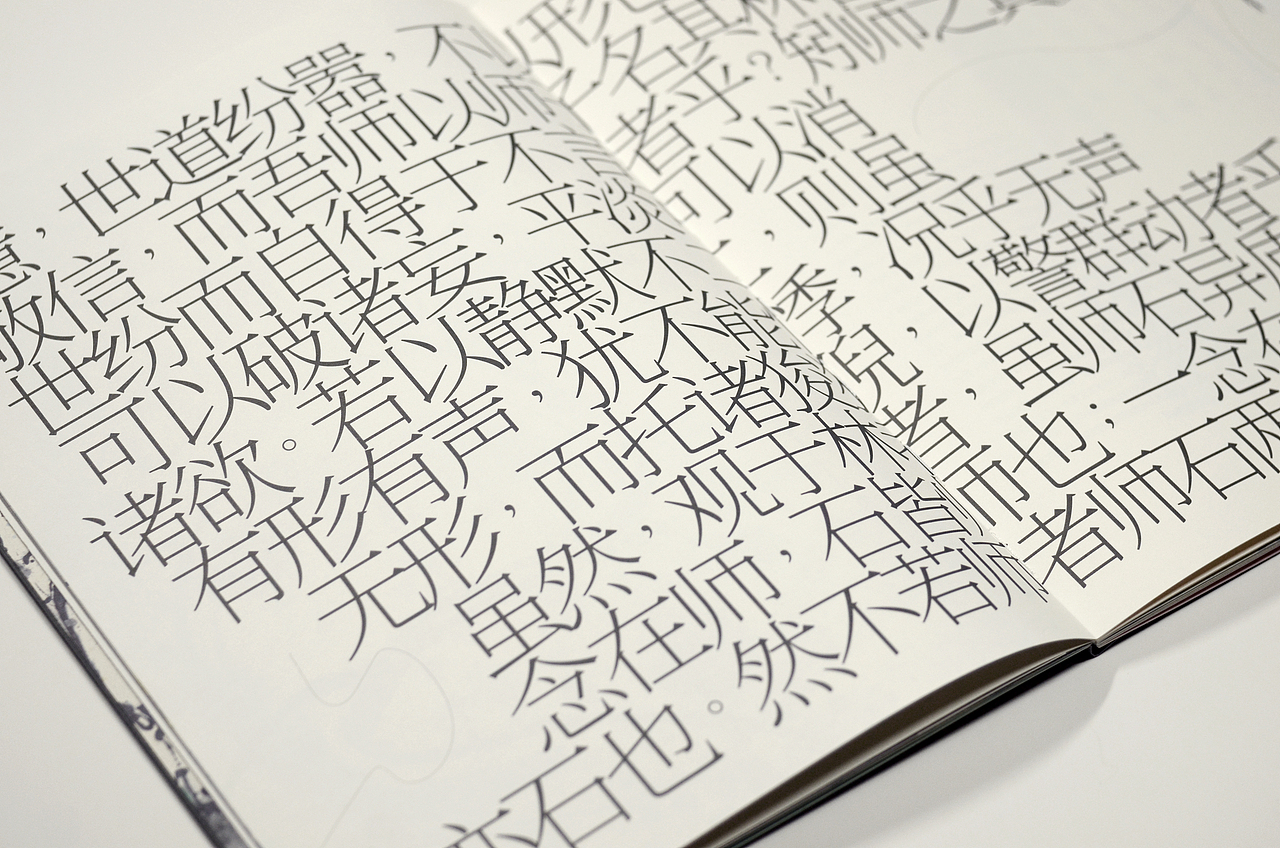 ，世道纷嚣，不
敬信，而吾师以师
世纷而自得于不言
可以破诸妄，平淡
诸欲。若以静默不
有形有声，犹不能
无形，而托诸者俊
虽然，观于林
念在师，石皆
石也。然不若师
以形
之名其林
者乎？矧师之真
可以消
，则虽
季，况乎无声
兒，以警群动者乎
者，虽师石异居
师也；一念
者师石两